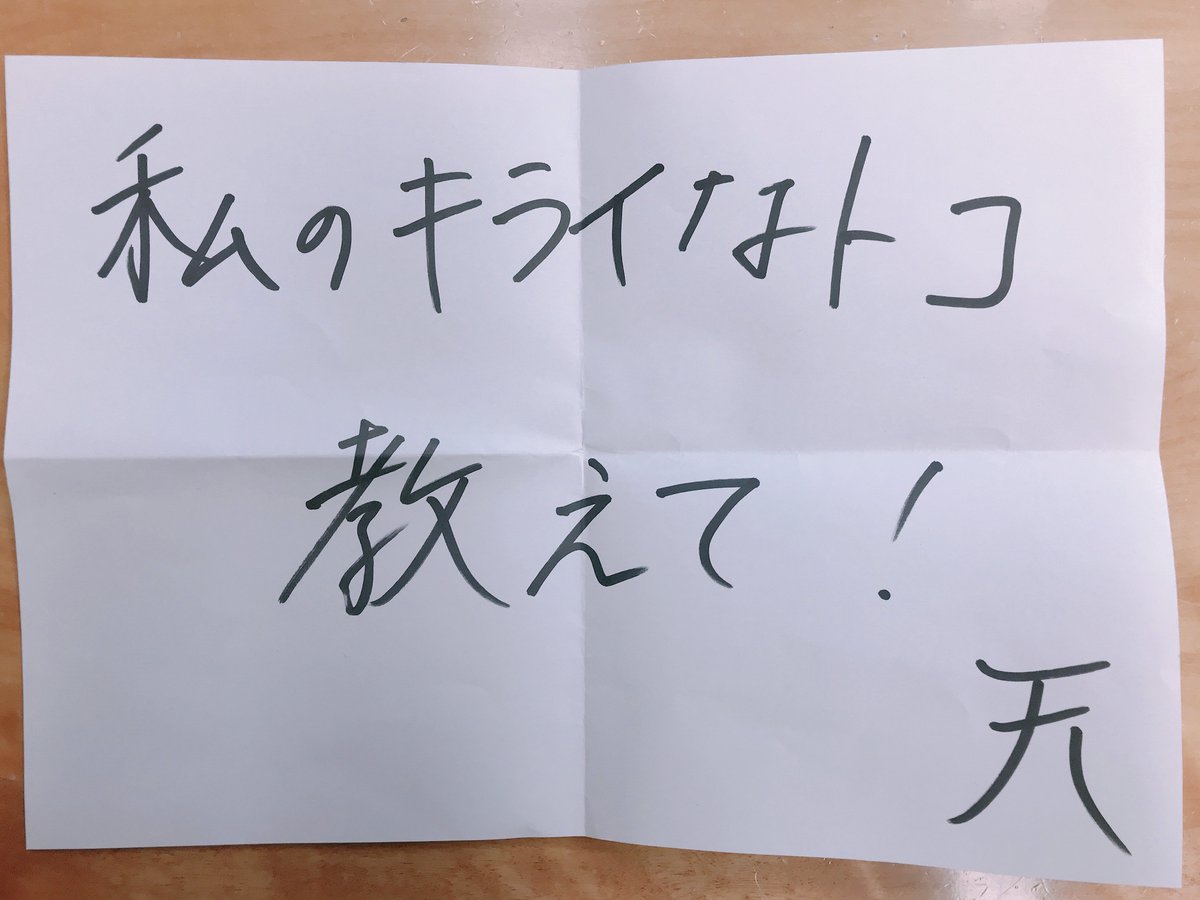 私のキライなトコ
教えて!
天